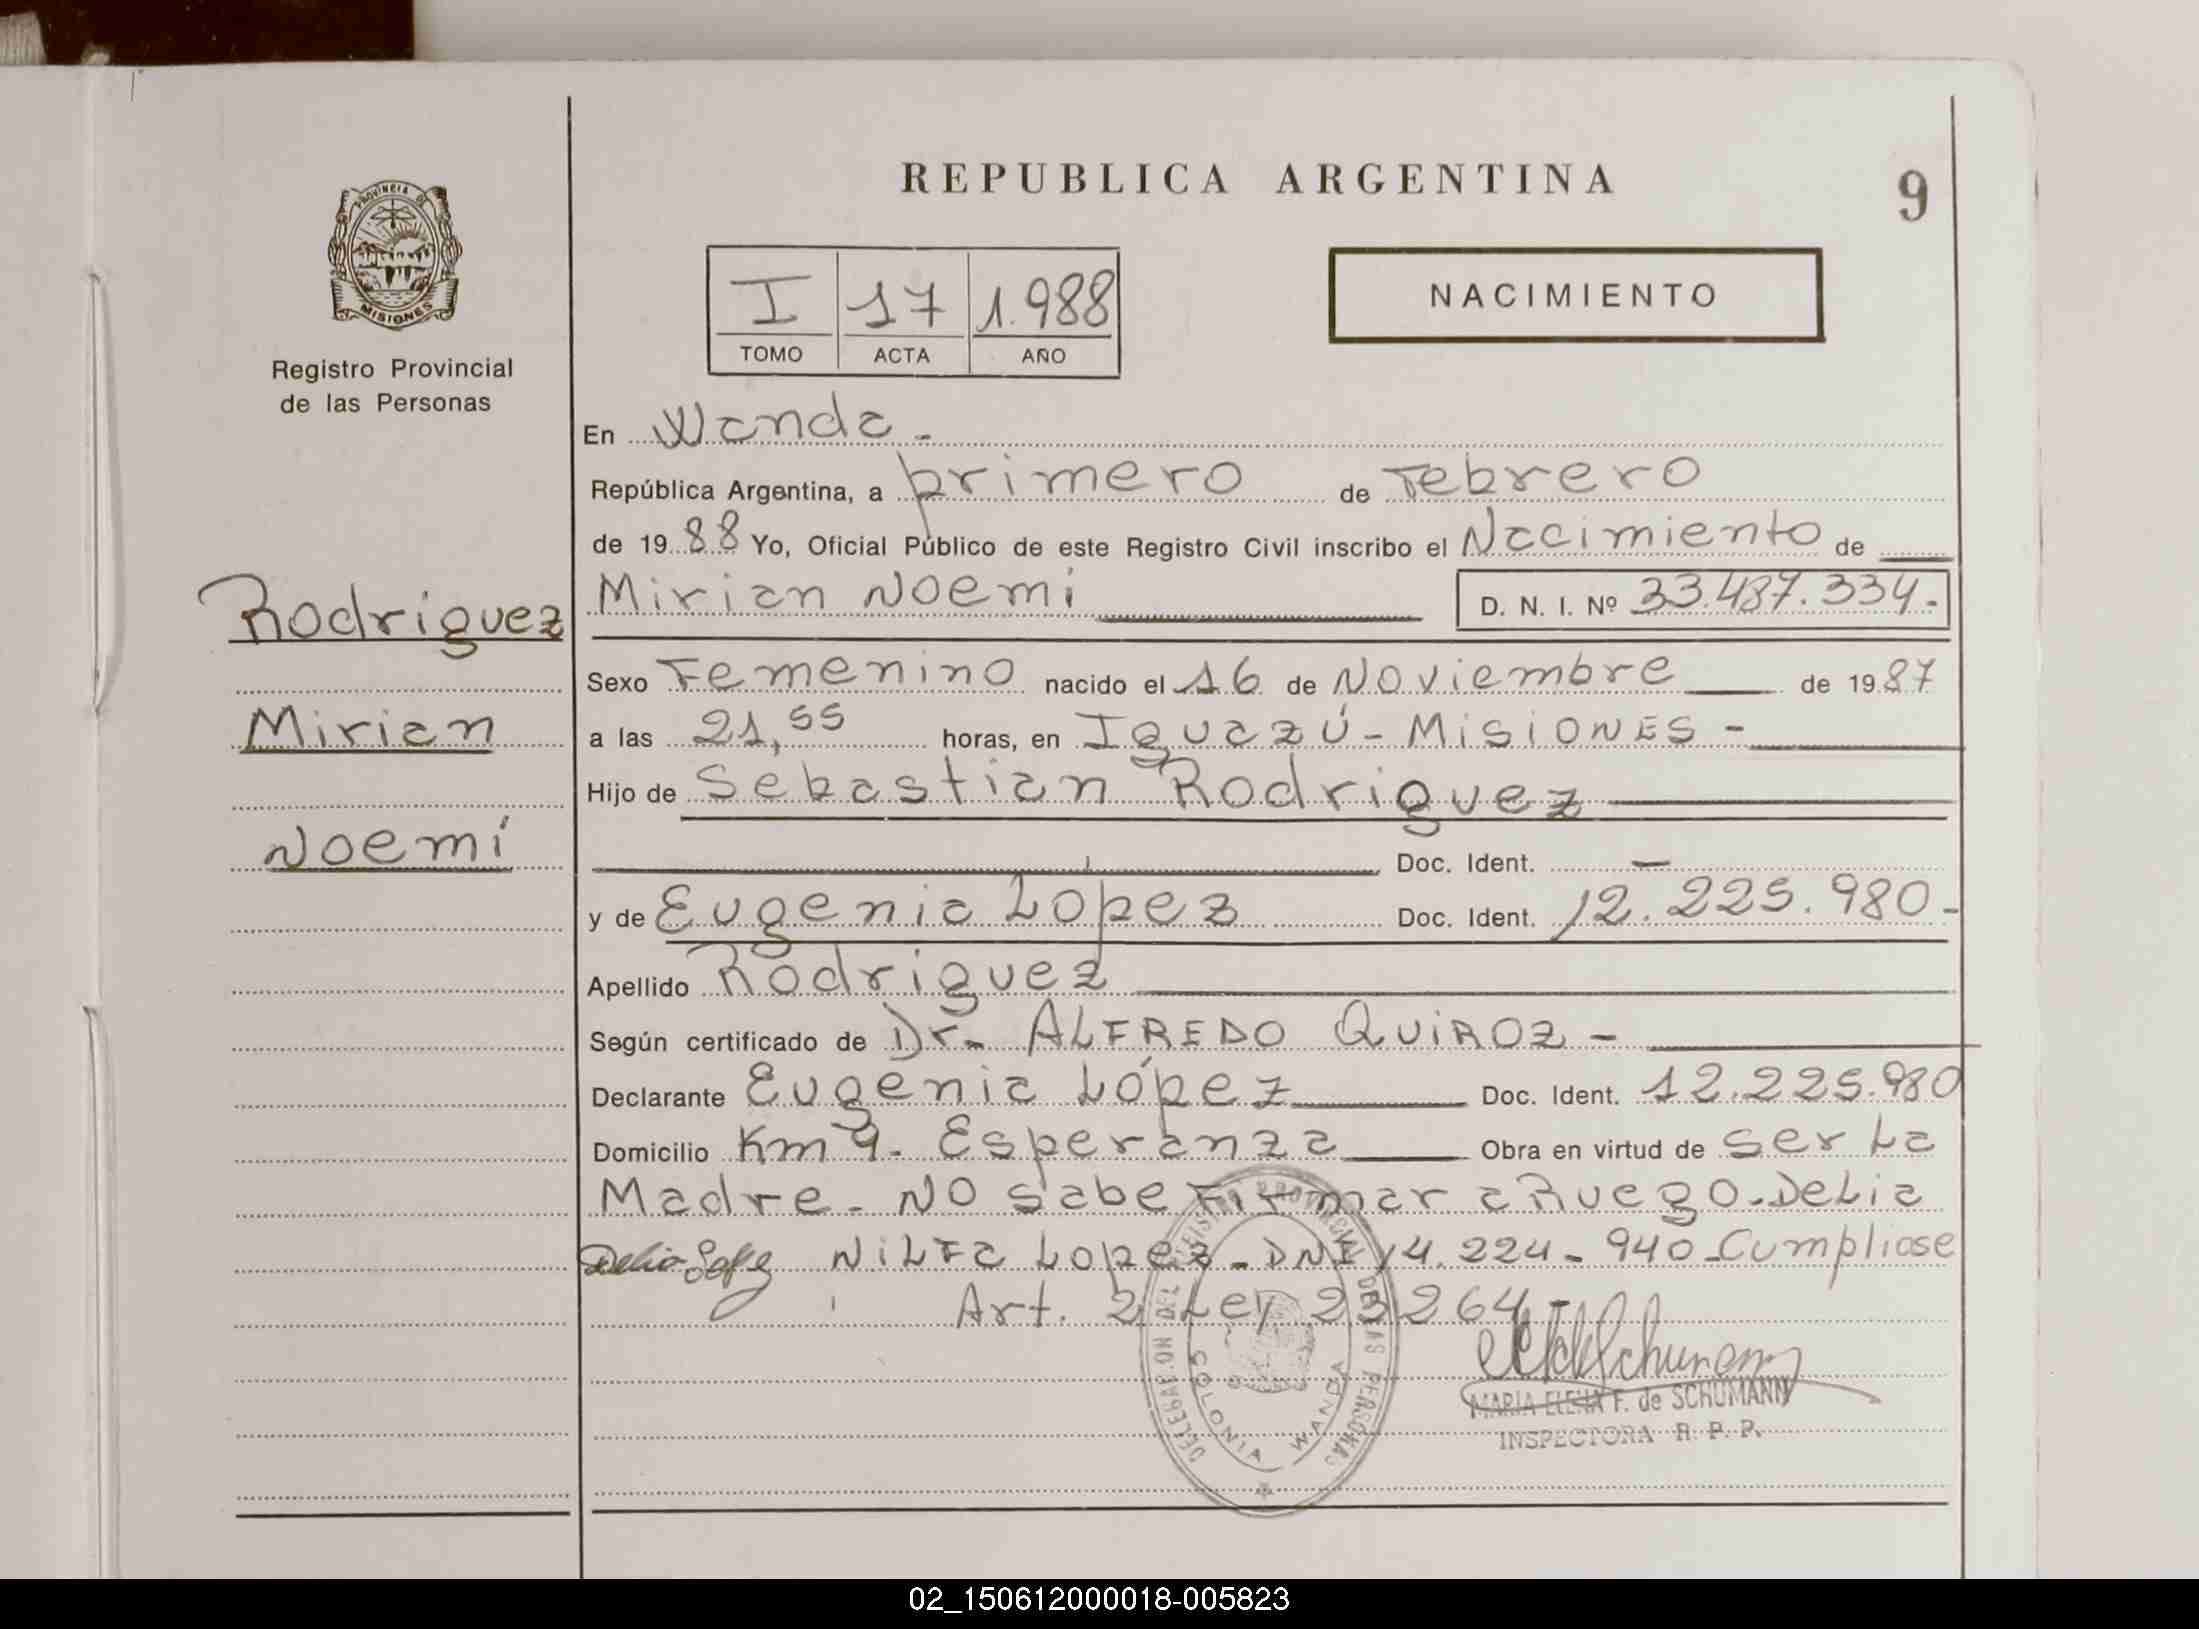 REPUBLICA ARGENTINA
9
PROVINCIA DE
MISIONES
Registro Provincial
de las Personas
I 17 1.988
TOMO ACTA AÑO
NACIMIENTO
En Wanda -
República Argentina, a primero de Febrero
de 1988 Yo, Oficial Público de este Registro Civil inscribo el Nacimiento de
Rodriguez
Mirian
Noemí
Mirian Noemi D. N. I. Nº 33.487.334.-
Sexo Femenino nacido el 16 de Noviembre de 1987
a las 21,55 horas, en Iguazú - Misiones -
Hijo de Sebastian Rodriguez
Doc. Ident. —
y de Eugenia Lopez Doc. Ident. 12.225.980-
Apellido Rodriguez
Según certificado de Dr. ALFREDO QUIROZ -
Declarante Eugenia López Doc. Ident. 12.225.980
Domicilio Km 9. Esperanza Obra en virtud de ser La
Madre - No sabe Firmar a Ruego - Delia
Delia Lopez Nilfa Lopez - DNI 14.224-940 - Cumpliose
Art. 2 Ley 23264 -
DELEGAC.ON DEL REGISTRO PROVINCIAL DE LAS PERSONAS
COLONIA WANDA
MARIA ELENA F. de SCHUMANN
INSPECTORA R. P. P.
02_150612000018-005823